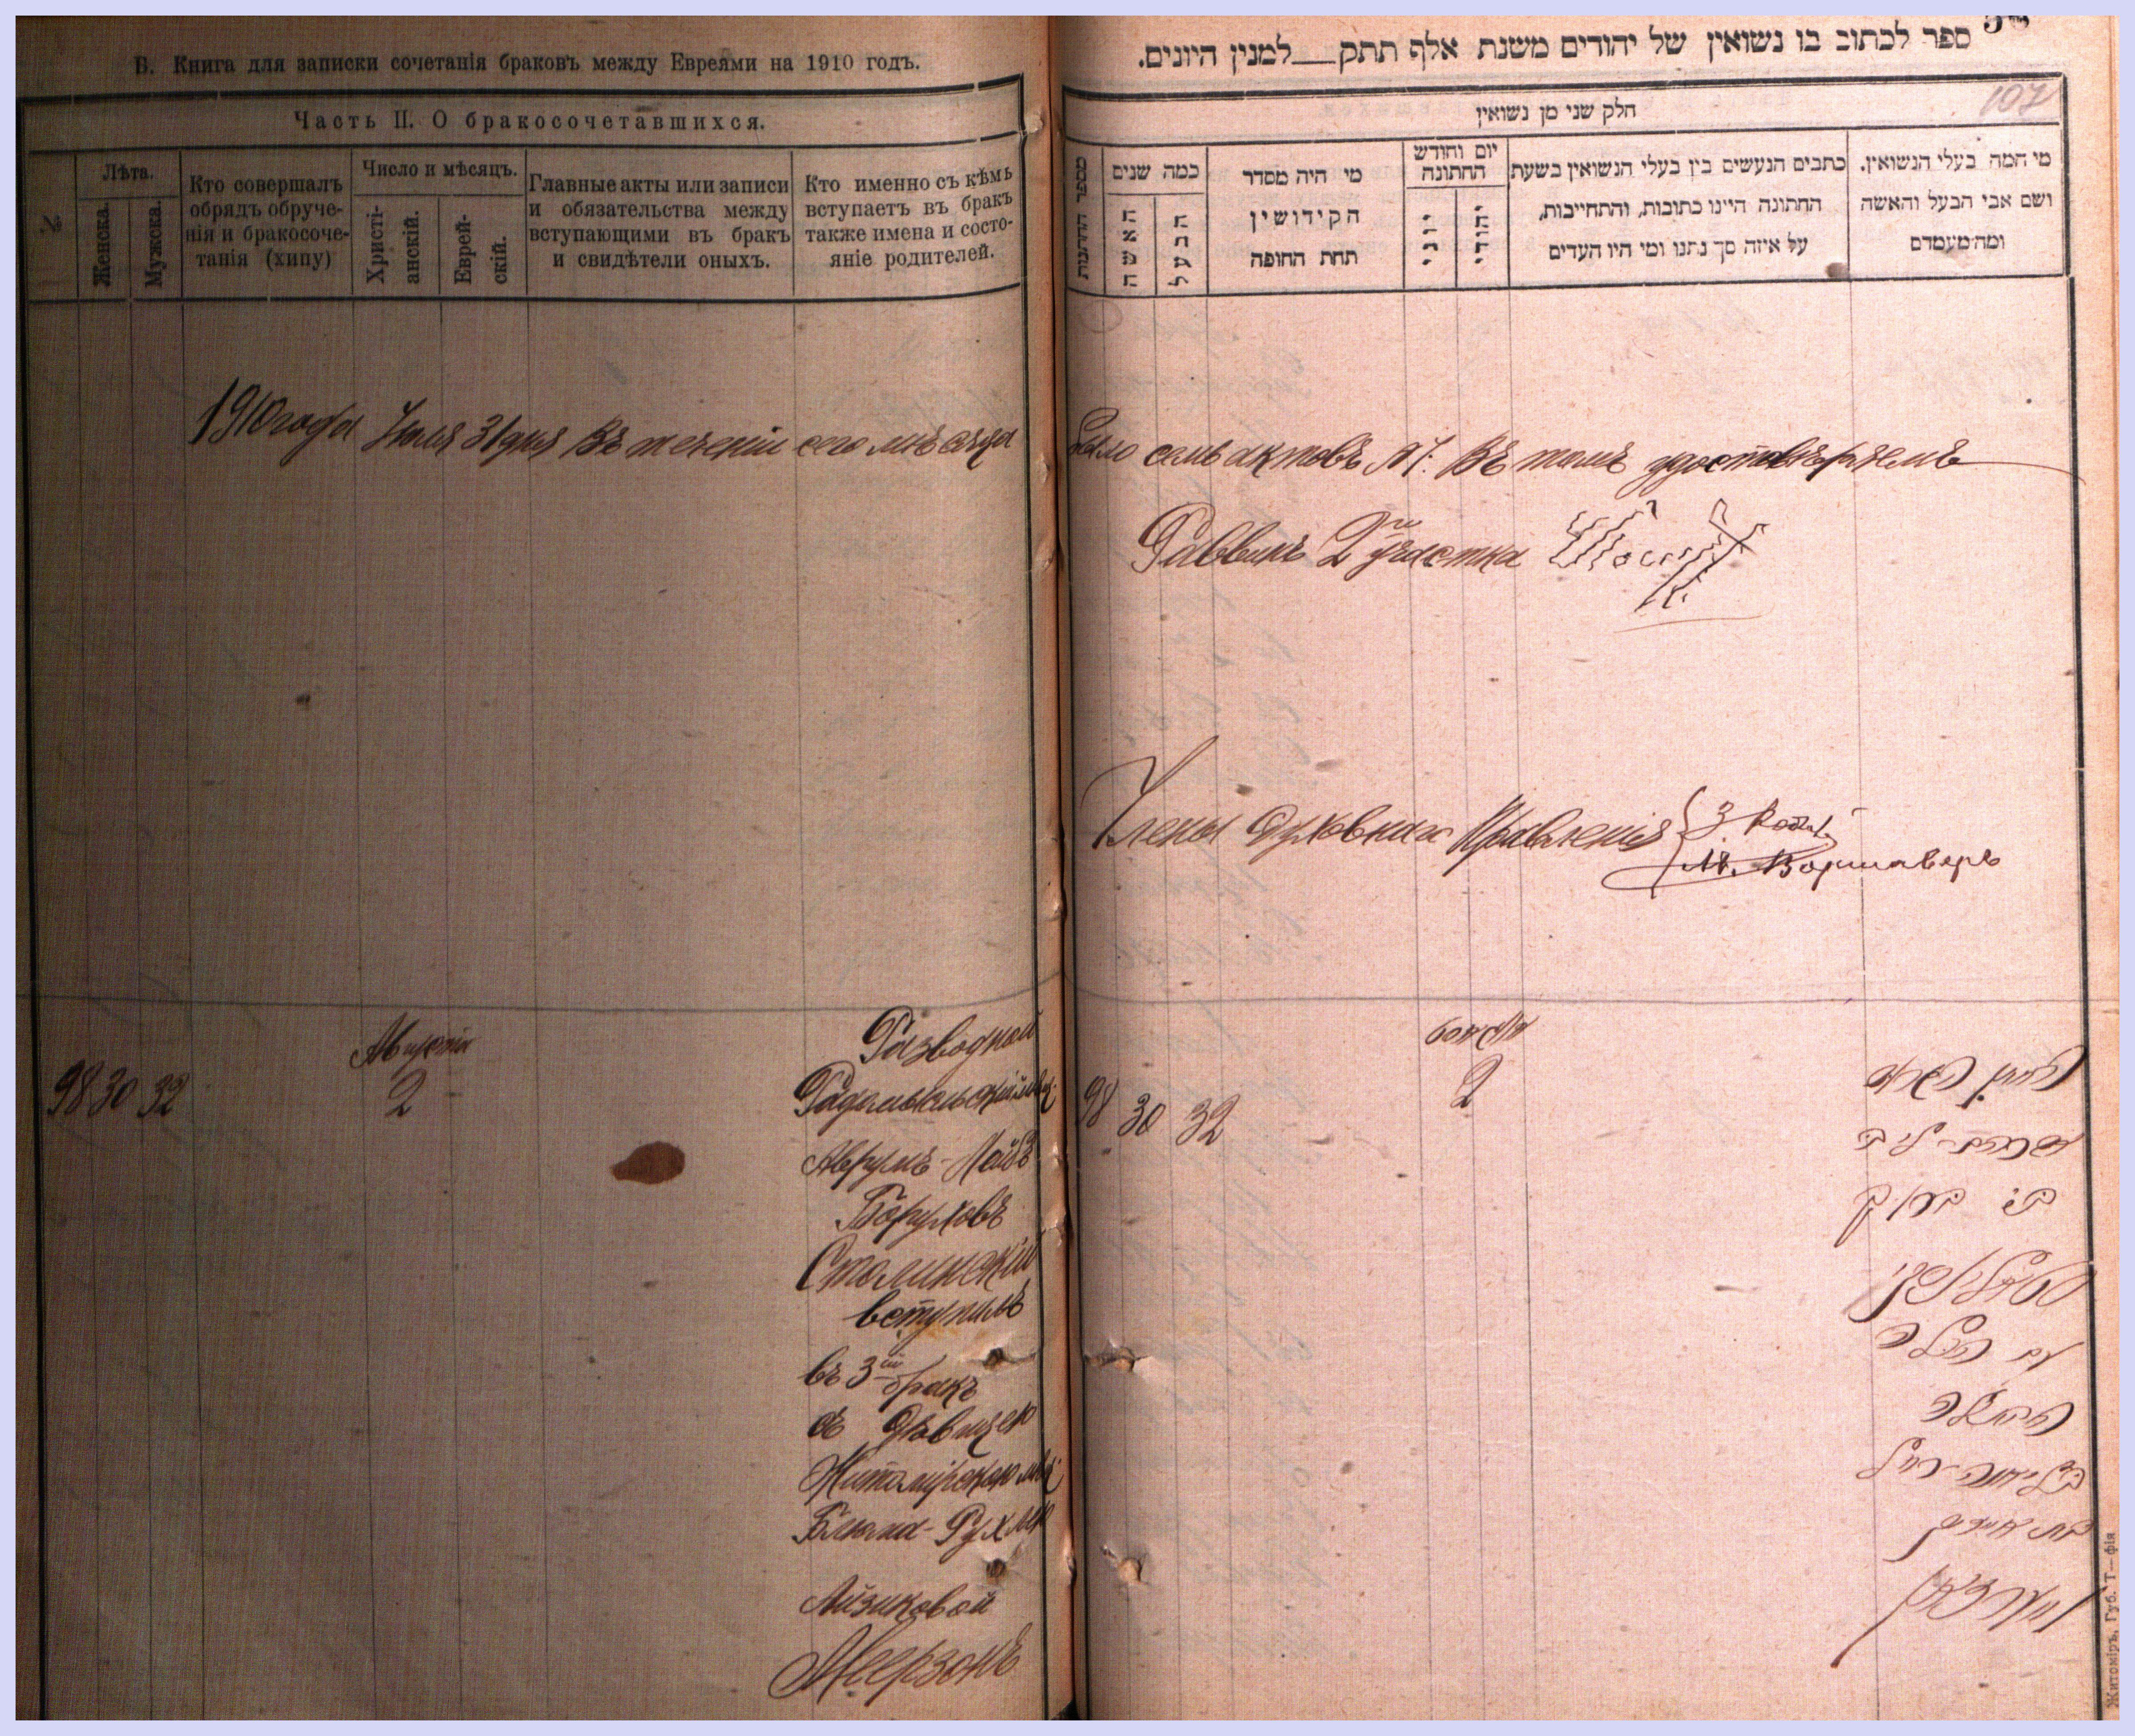 В. Книга для записки сочетанія браковъ между Евреями на 1910 годъ.
Часть II. О бракосочетавшихся.
№
Лѣта.
Женска.
Мужска.
Кто совершалъ
обрядъ обруче-
нія и бракосоче-
танія (хипу)
Число и мѣсяцъ.
Христі-
анскій.
Еврей-
скій.
Главные акты или записи
и обязательства между
вступающими въ бракъ
и свидѣтели оныхъ.
Кто именно съ кѣмъ
вступаетъ въ бракъ
также имена и состо-
яніе родителей.
1910 года Іюля 31 дня Въ теченіи сего мѣсяца
Августа
98 30 32 2
Разводной
Радомысльскій мѣщ.
Аврумъ-Лейбъ
Боруховъ
Столинскій
вступилъ
въ 3ій бракъ
съ дѣвицею
Житомірскою мѣщ.
Блюма-Рухлею
Айзиковой
Меерзонъ
ספר לכתוב בו נשואין של יהודים משנת אלף תתק למנין היונים.
107
חלק שני מן נשואין
מספר החתונות
כמה שנים
האשה
הבעל
מי היה מסדר
הקידושין
תחת החופה
יום וחודש
החתונה
יוני
יהודי
כתבים הנעשים בין בעלי הנשואין בשעת
החתונה היינו כתובות, והתחייבות,
על איזה סך נתנו ומי היו העדים
מי המה בעלי הנשואין.
ושם אבי הבעל והאשה
ומה מעמדם
было семь актовъ №7: Въ томъ удостовѣряемъ
Раввинъ 2го участка
Члены Духовнаго Правленія
М. Варшаверъ
אויגוסט
98 30 32 2
החתן הגרוש
אברהם-ליב
בן ברוך
סטאלינסקי
עם הכלה
הבתולה
בלומה-רחל
בת אייזיק
מערזאן
Житоміръ, Губ. Т—фія